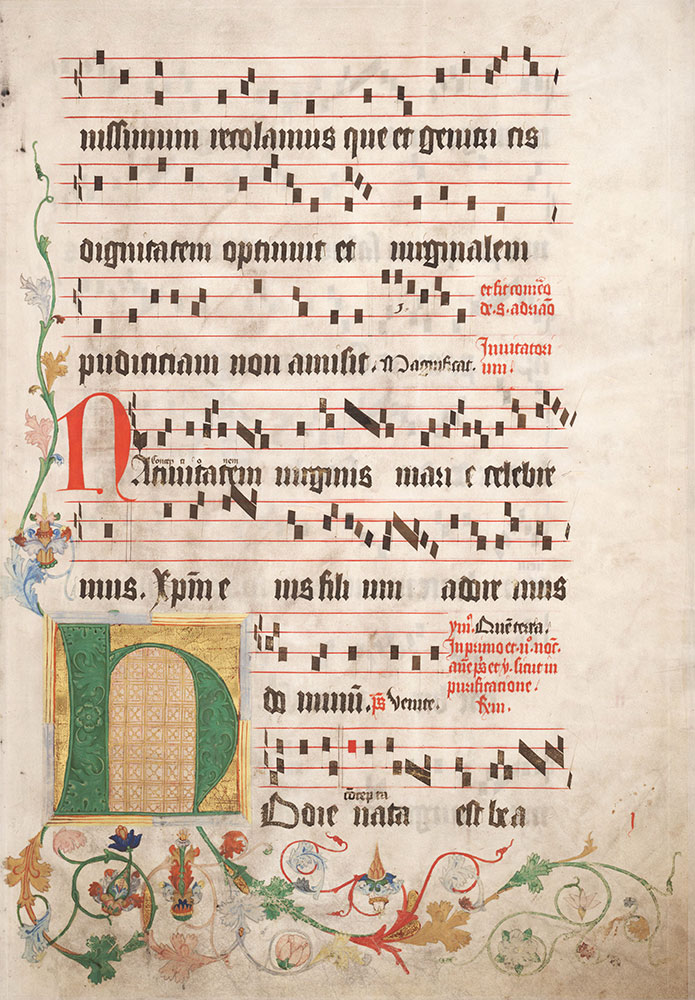 nissimum recolamus que et genitri cis
dignitatem optinuit et virginalem
pudiciciam non amisit. Magnificat.
et fit com̄eō
de. S. adriāo
Invitatori
um.
concep ti o nem
Nativitatem virginis mari e celebre
mus. Xp̄m e ius fili um adore mus
do minū. ps̄ Venite.
ymᵒ. Quē terra.
In primo et ijᵒ. noc̄.
añe ps̄ et v̄. sicut in
purificatione.
concep ta
Hodie nata est bea